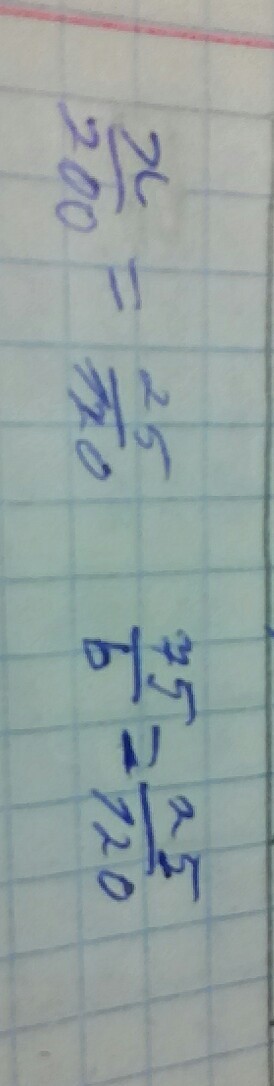 x/200 = 25/120 75/b = 25/120